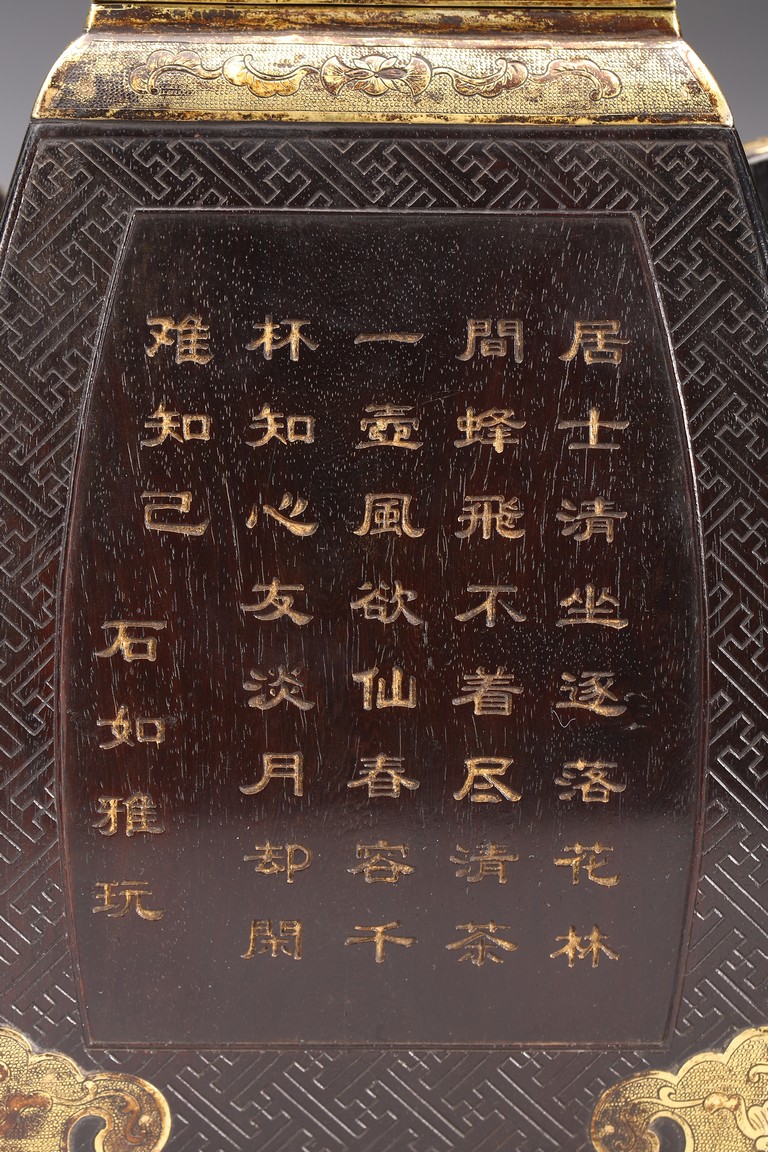 居士清坐逐落花林
間蜂飛不着尽清茶
一壺風欲仙春容千
杯知心友淡月却閑
难知己
石如雅玩